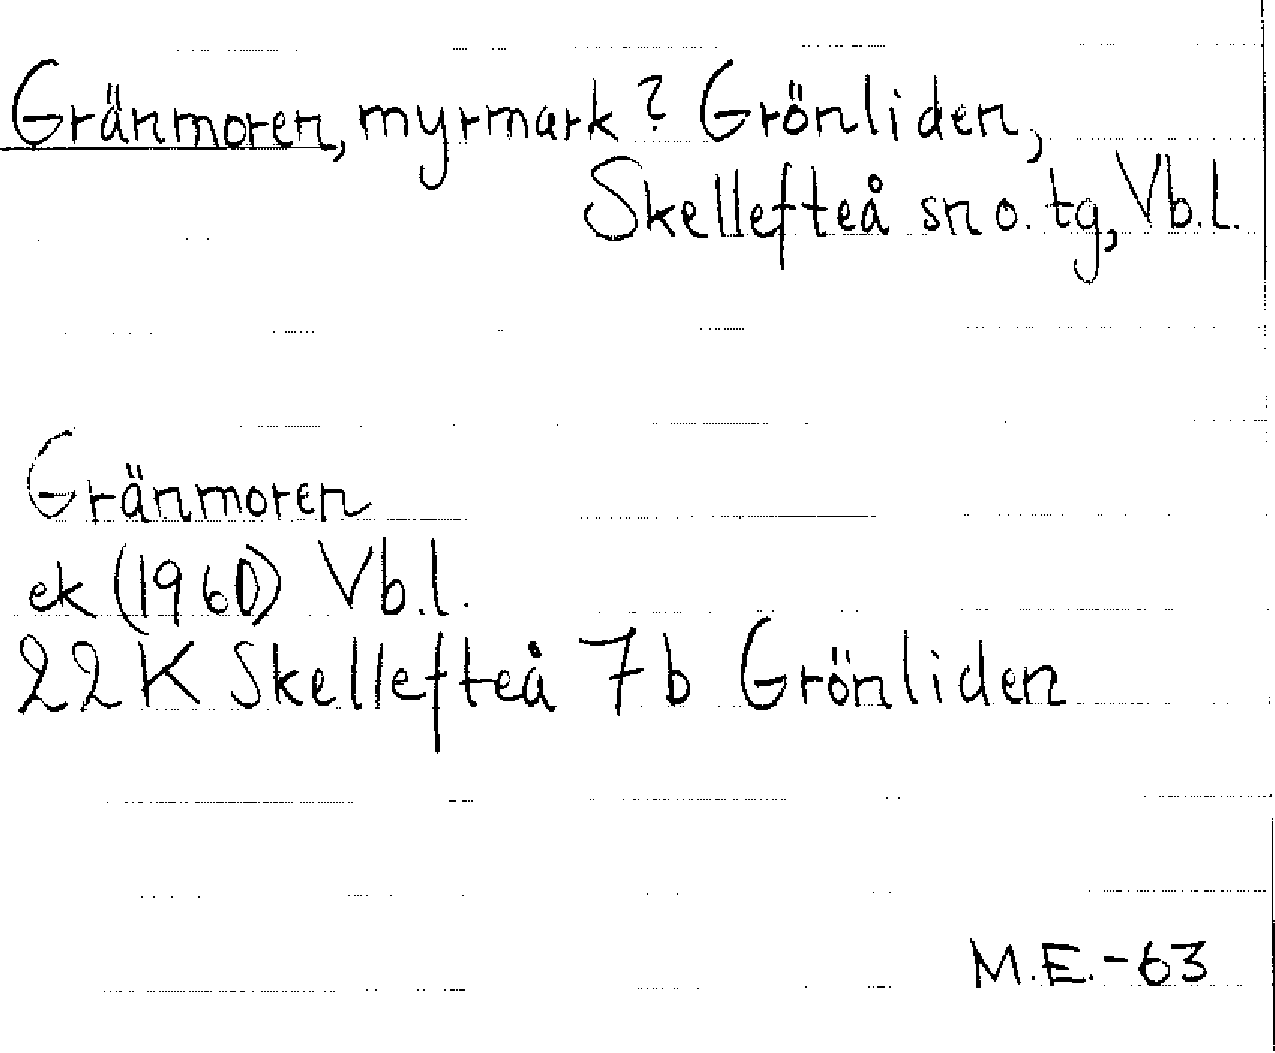 Gränmoren, myrmark? Grönliden,
Skellefteå sn o. tg, Vb.l.
Gränmoren
ek (1960) Vb.l.
22 K Skellefteå 7b Grönliden
M.E.-63